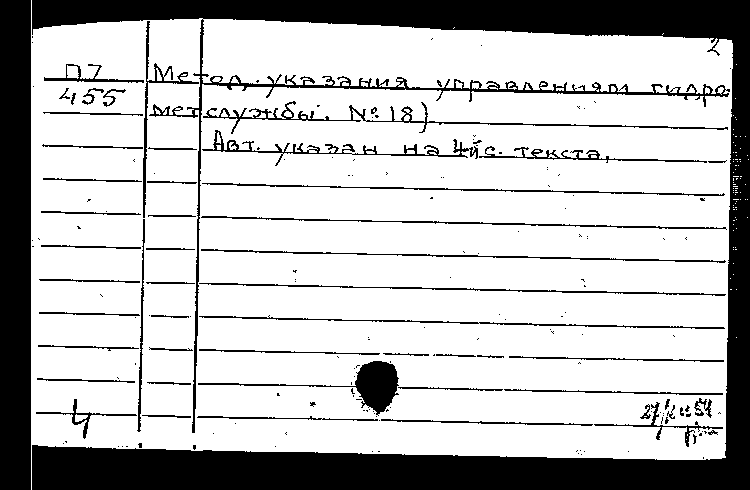 2
П7 Метод. указания управлениям гидро-
455 метслужбы. № 18)
Авт. указан на 4й с. текста.
4